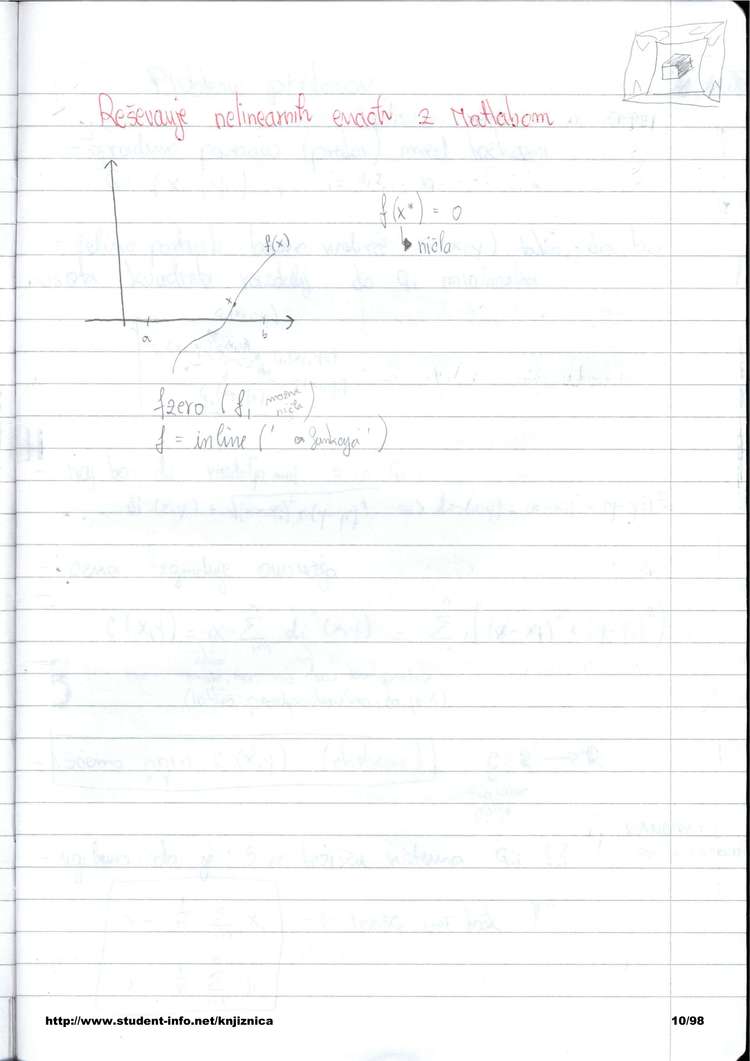 Reševanje nelinearnih enačb z Matlabom
f(x*) = 0
ničla
f(x)
x
a
b
fzero (f, možna ničla)
f = inline (' funkcija ')
http://www.student-info.net/knjiznica
10/98